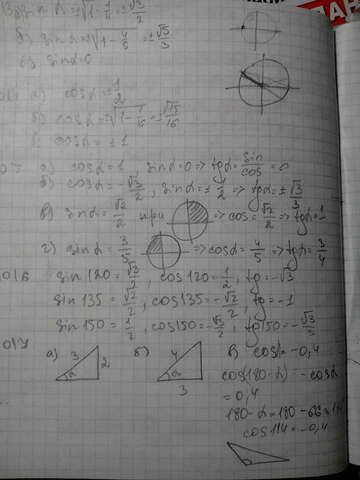 sin α = √1-1/4 = ±√3/2
б) sin α = √1-4/9 = ±√5/3
в) sin α = 0
а) cos α = 1/2
б) cos α = √1-1/16 = ±√15/16
в) cos α = ±1
а) cos α = 1 sin α = 0 => tg α = sin/cos = 0
б) cos α = -√3/2, sin α = ±1/2 => tg α = ±√3/3
в) sin α = √2/2 при => cos = √2/2 => tg α = 1
г) sin α = 3/5 => cos α = 4/5 => tg α = 3/4
sin 120 = √3/2, cos 120 = 1/2, tg = -√3
sin 135 = √2/2, cos 135 = -√2/2, tg = -1
sin 150 = 1/2, cos 150 = -√3/2, tg 150 = -√3/3
а) 3 2 α б) 4 3 α в) cos α = -0,4
cos(180-α) = -cos α
= 0,4
180-α = 180-66 = 114
cos 114 = -0,4